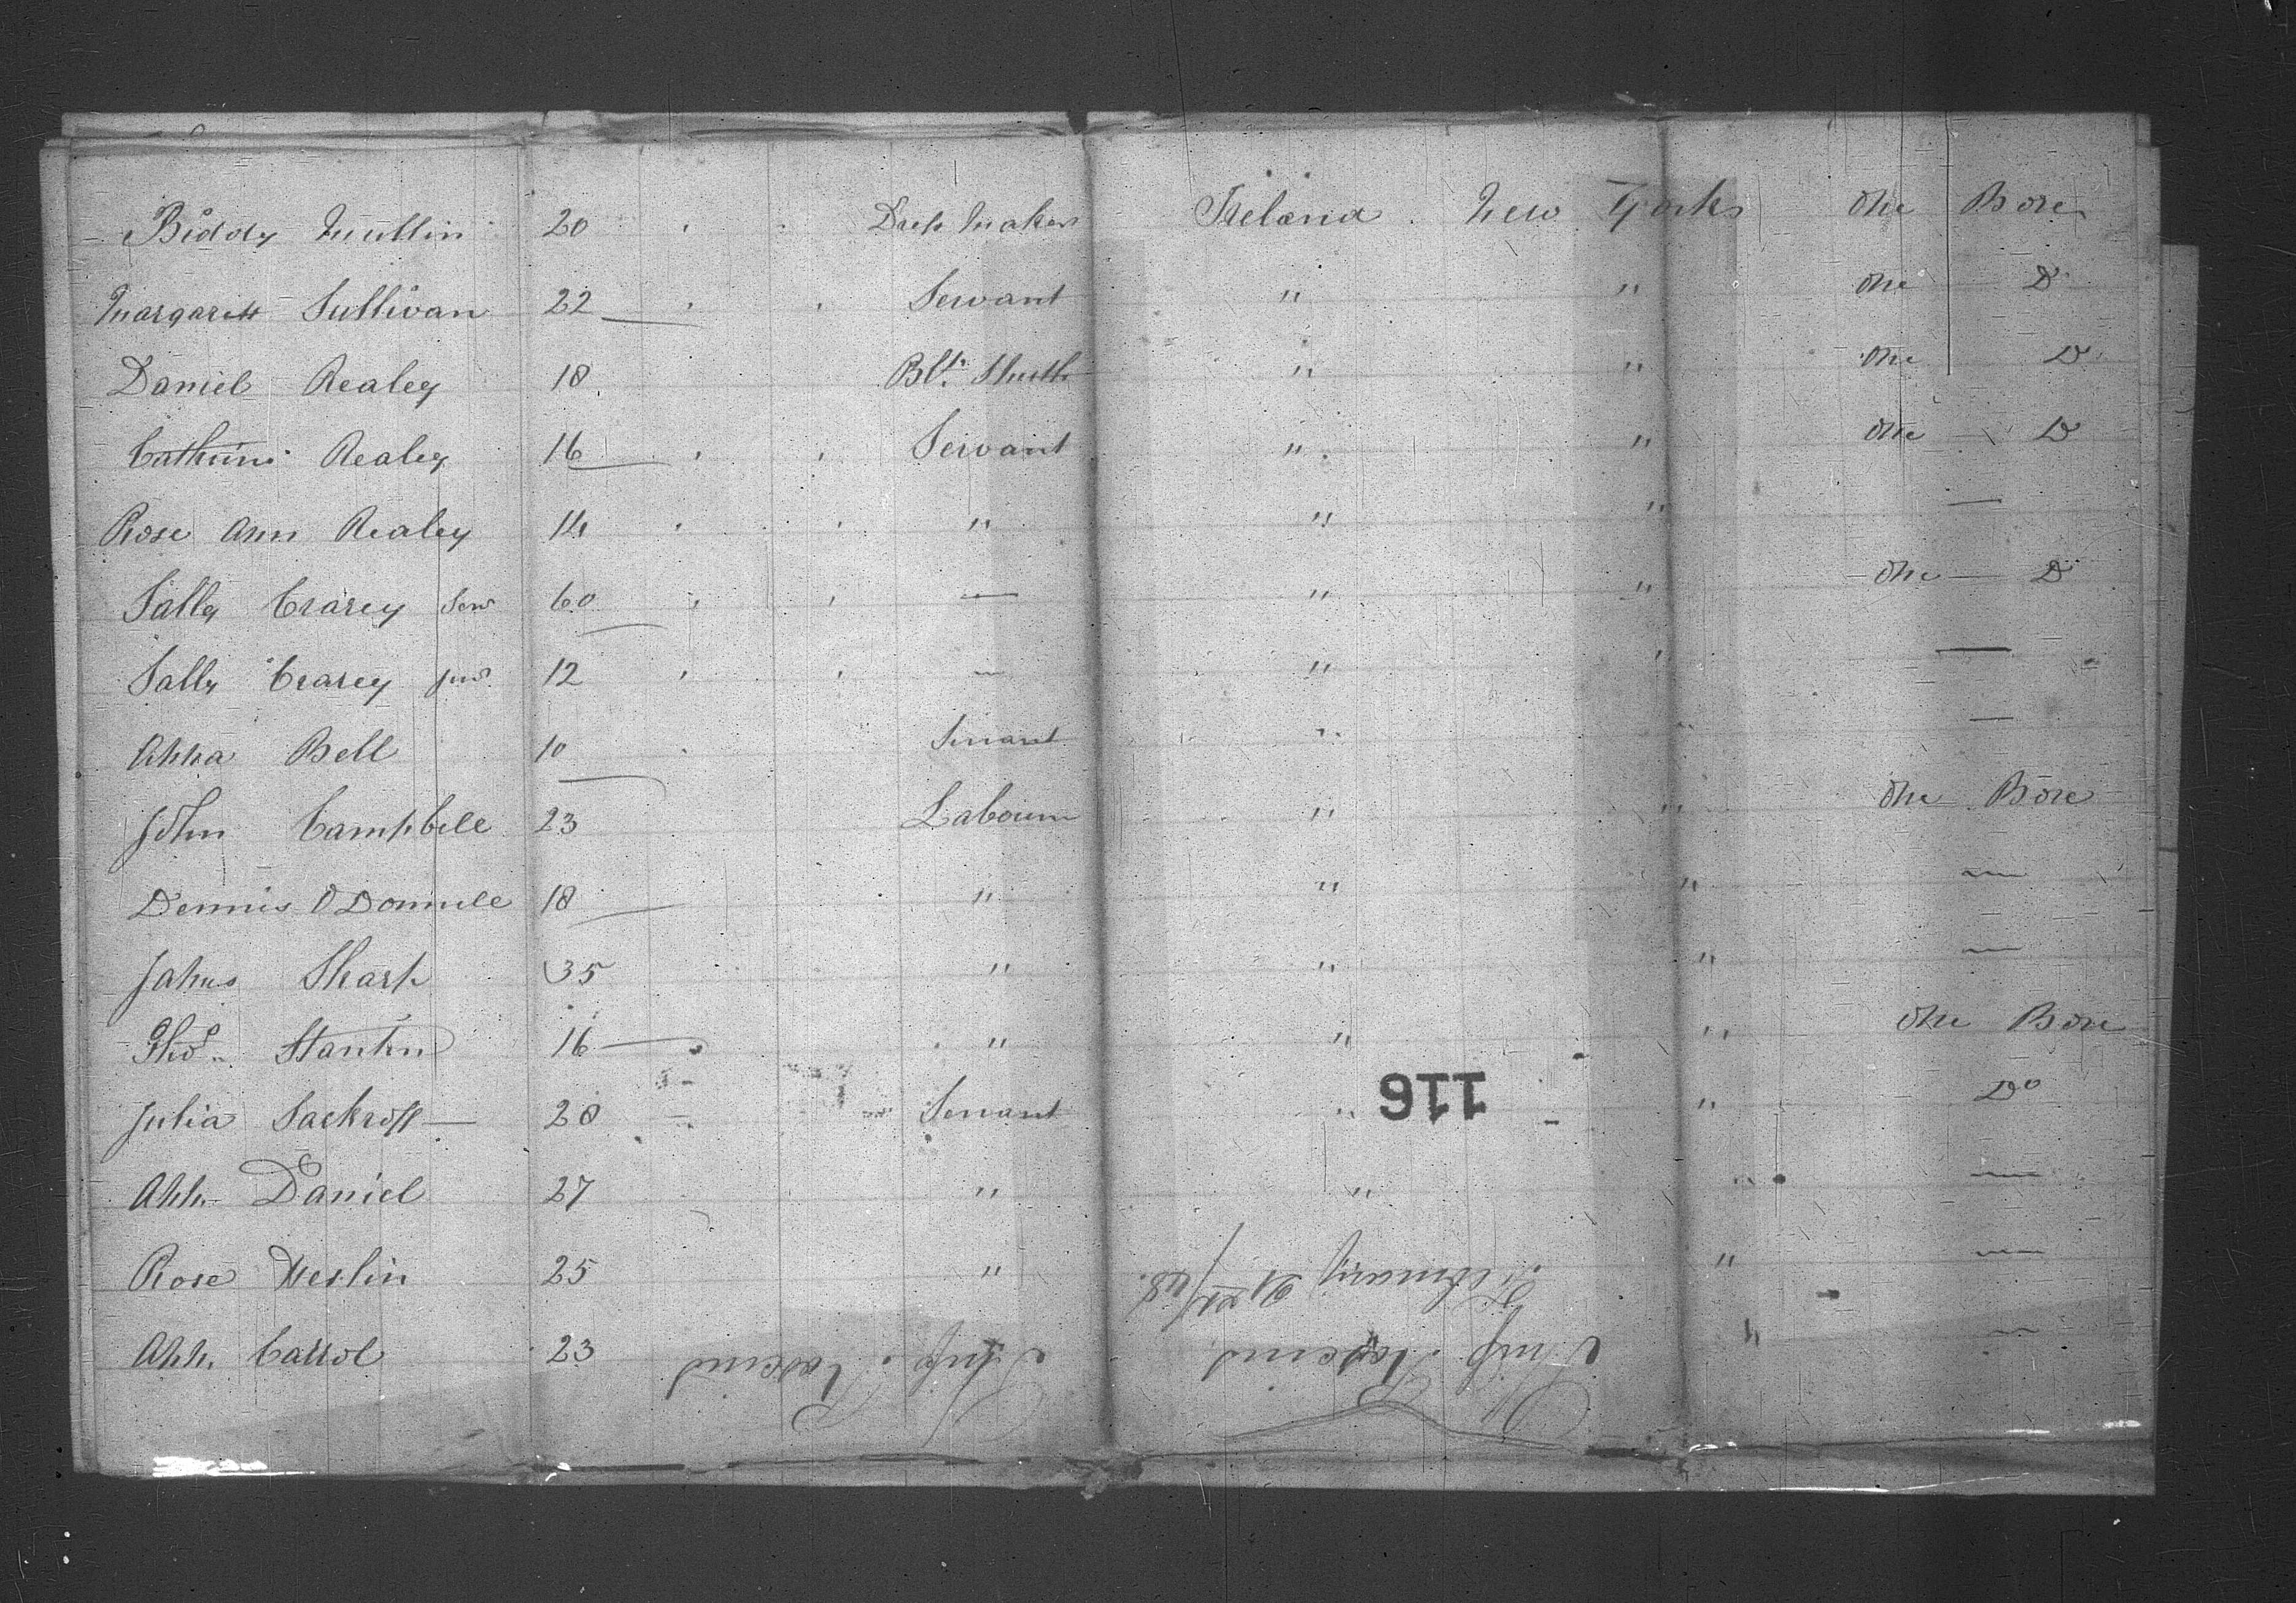 Biddy Mullin 20 " " Dress Maker Ireland New York One Box
Margarett Sullivan 22 " " Servant " " One Do
Daniel Realey 18 Blk Smith " " One Do
Catherine Realey 16 " " Servant " " One Do
Rose Ann Realey 14 " " " " " —
Sally Crarey Senr 60 " " — " " One Do
Sally Crarey junr 12 " " — " " —
Anna Bell 10 " Servant " " —
John Campbell 23 Labourer " " One Box
Dennis O Donnell 18 " " " —
James Sharp 35 " " " —
Thos Stanton 16 " " " One Box
Julia Sackroff — 28 Servant " " Do
Ann Daniel 27 " " " —
Rose Heslin 25 " " —
Ann Carrol 23 " —
116
Ship Roscius
Ship Roscius
February 21st/48.